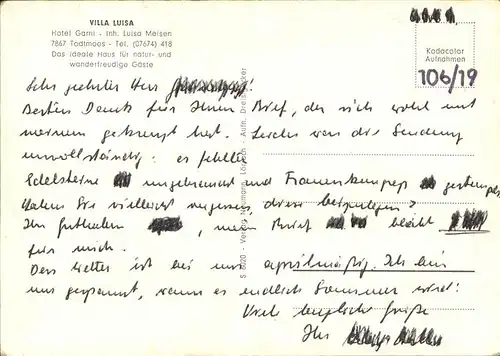 VILLA LUISA
Hotel Garni - Inh. Luisa Meisen
7867 Todtmoos - Tel. (07674) 418
Das ideale Haus für natur- und
wanderfreudige Gäste
Kodacolor
Aufnahmen
106/19
Sehr geehrter Herr !
Besten Dank für Ihren Brief, der sich wohl mit
meinem gekreuzt hat. Leider war die Sendung
unvollständig: es fehlten
Edelsteine ungebraucht und Frauenkempep gestempelt
Haben Sie vielleicht vergessen, diese beizulegen?
Ihr Guthaben , mein Brief bleibt
für mich.
Das Wetter ist bei uns aprilmäßig. Ich bin
nur gespannt, wann es endlich Sommer wird!
Viele herzliche Grüße
Ihr
S 6020 - Verlag Naumann, Lörrach - Aufn.